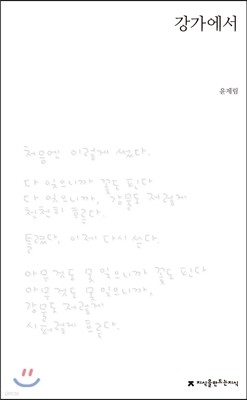 강가에서
윤제림
처음엔 이렇게 썼다.
다 잊으니까 꽃도 핀다
다 잊으니까, 강물도 저렇게
천천히 흐른다
틀렸다, 이제 다시 쓴다.
아무 것도 못 잊으니까 꽃도 핀다
아무 것도 못 잊으니까,
강물도 저렇게
시퍼렇게 흐른다.
지식을만드는지식